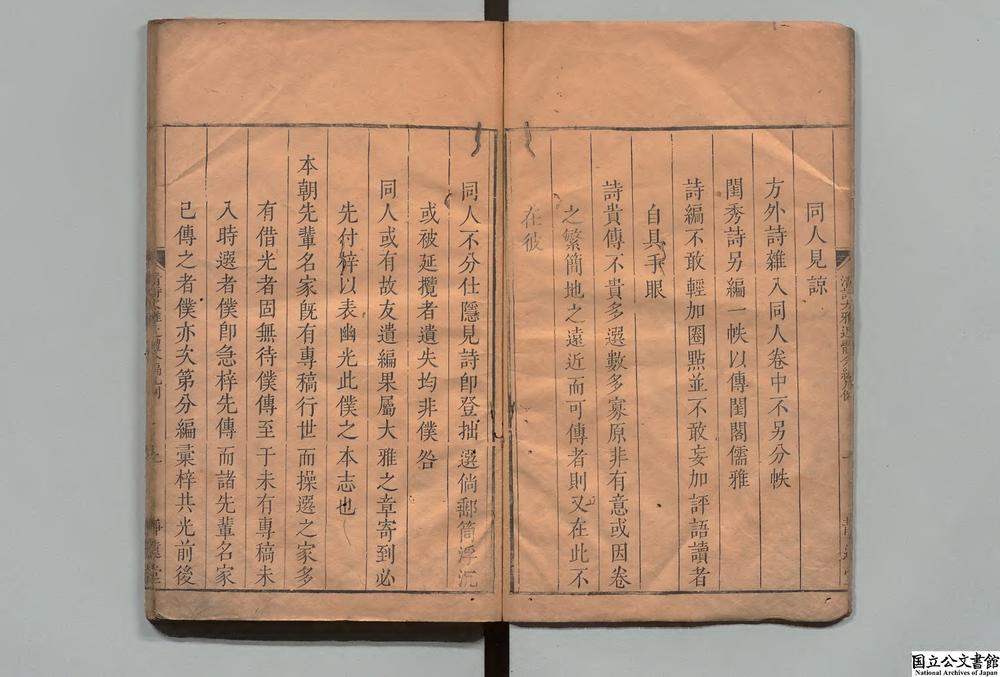 同人見諒
方外詩雜入同人卷中不另分帙
閨秀詩另編一帙以傳閨閣儒雅
詩編不敢輕加圈點並不敢妄加評語讀者
自具手眼
詩貴傳不貴多選數多寡原非有意或因卷
之繁簡地之遠近而可傳者則又在此不
在彼
同人不分仕隱見詩卽登拙選倘郵筒浮沉
或被延攬者遺失均非僕咎
同人或有故友遺編果屬大雅之章寄到必
先付梓以表幽光此僕之本志也
本朝先輩名家旣有專稿行世而操選之家多
有借光者固無待僕傳至于未有專稿未
入時選者僕卽急梓先傳而諸先輩名家
已傳之者僕亦次第分編彙梓共光前後
国立公文書館
National Archives of Japan